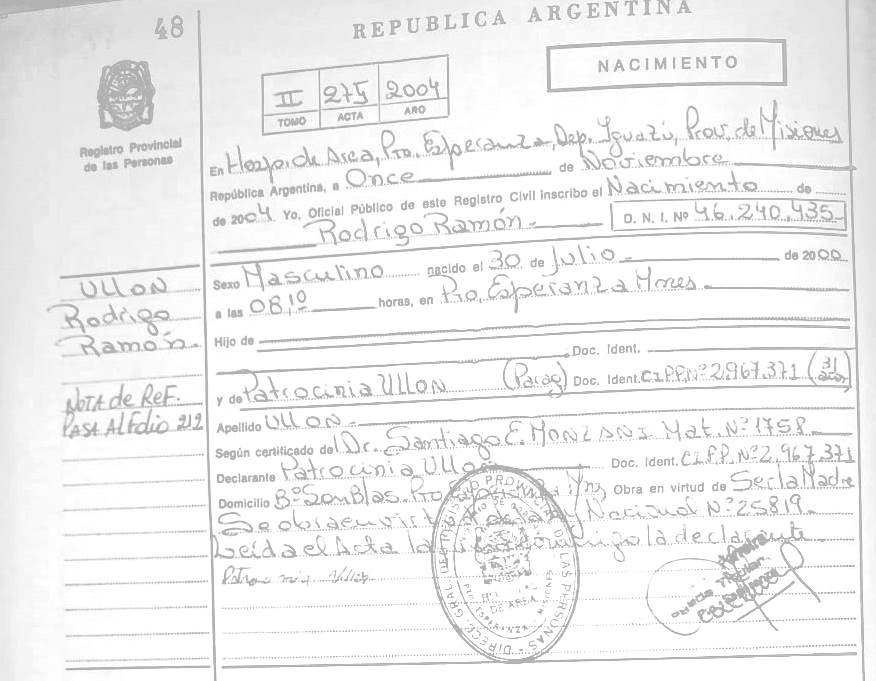 48
REPUBLICA ARGENTINA
NACIMIENTO
II 275 2004
TOMO ACTA AÑO
Registro Provincial
de las Personas
En Hosp. de Area, Pto. Esperanza, Dep. Iguazú, Prov. de Misiones
República Argentina, a Once de Noviembre
de 2004 Yo, Oficial Público de este Registro Civil inscribo el Nacimiento de
Rodrigo Ramón.- D. N. I. Nº 46.240.435-
Sexo Masculino nacido el 30 de Julio.- de 2000
a las 08,10 horas, en Pto. Esperanza Mnes
Hijo de
Doc. Ident.
y de Patrocinia Ullon (Parag) Doc. Ident. C.I.P.P. Nº 2.967.371 (31 años)
Apellido ULLON.-
Según certificado del Dr. Santiago E. Mat. Nº 1758.-
Declarante Patrocinia Ullon Doc. Ident. C.I.P.P. Nº 2.967.371
Domicilio Bº San Blas. Pto Obra en virtud de Ser la Madre
Se obra en Nacional Nº 25819.-
Leida el Acta la la declarante
ULLON
Rodrigo
Ramón.-
NOTA de REF.
PASA Al Folio 212
DIRECC. GRAL. DEL REGISTRO PROVINCIAL DE LAS PERSONAS
DE AREA
PTO. ESPERANZA - MISIONES